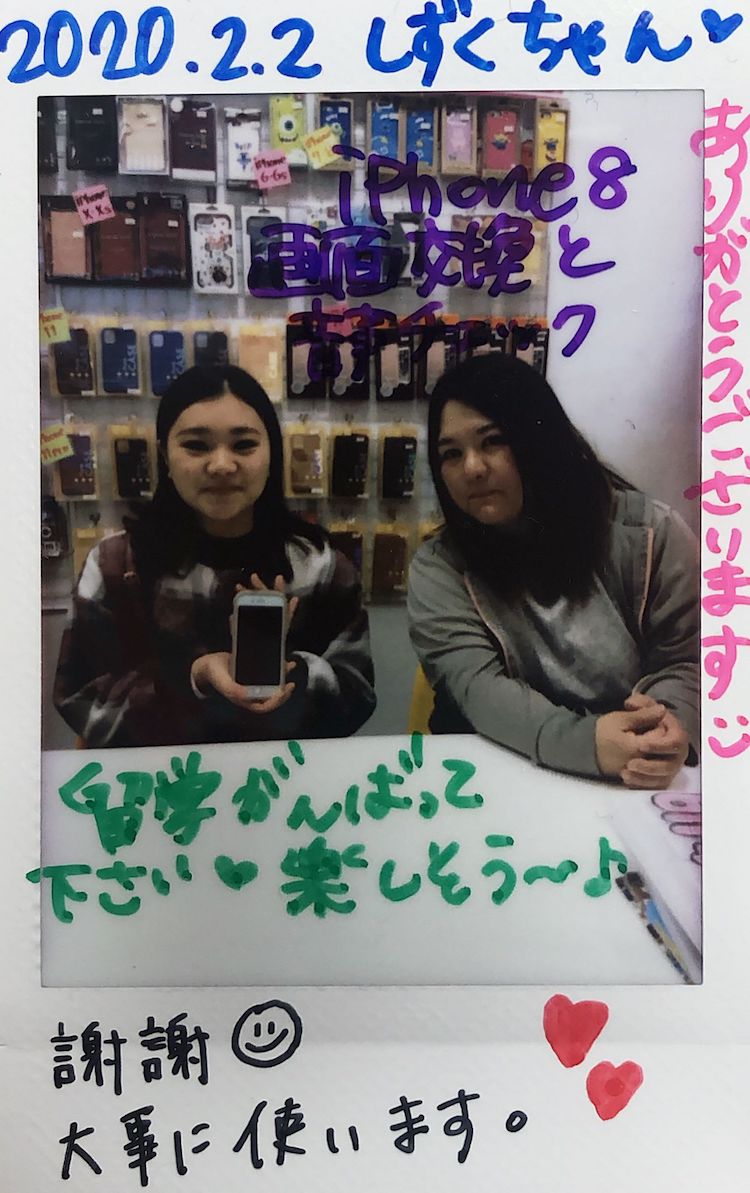 2020.2.2 しずくちゃん♥
ありがとうございます
iPhone8
画面交換と
音声チェック
iPhone
6-6s
iPhone
X Xs
留学がんばって
下さい♥楽しそう〜♪
謝謝☺
大事に使います。